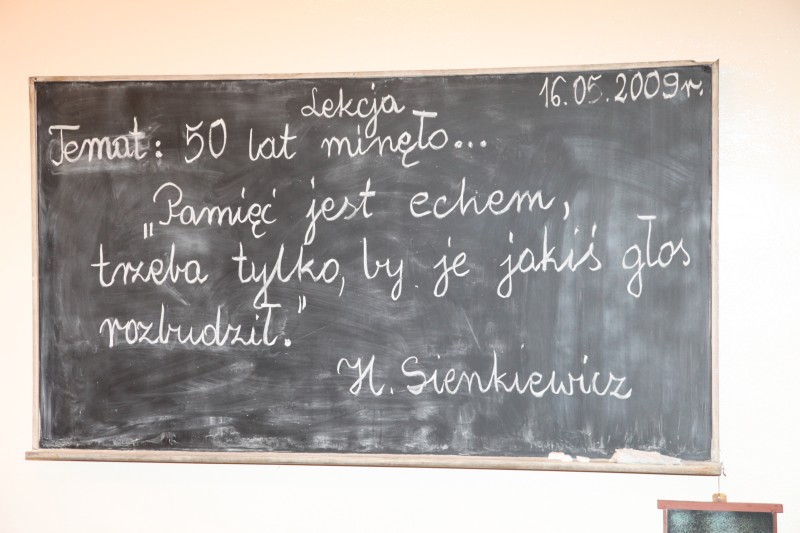 Lekcja 16.05.2009r.
Temat: 50 lat minęło...
„Pamięć jest echem,
trzeba tylko, by je jakiś głos
rozbudził."
H. Sienkiewicz